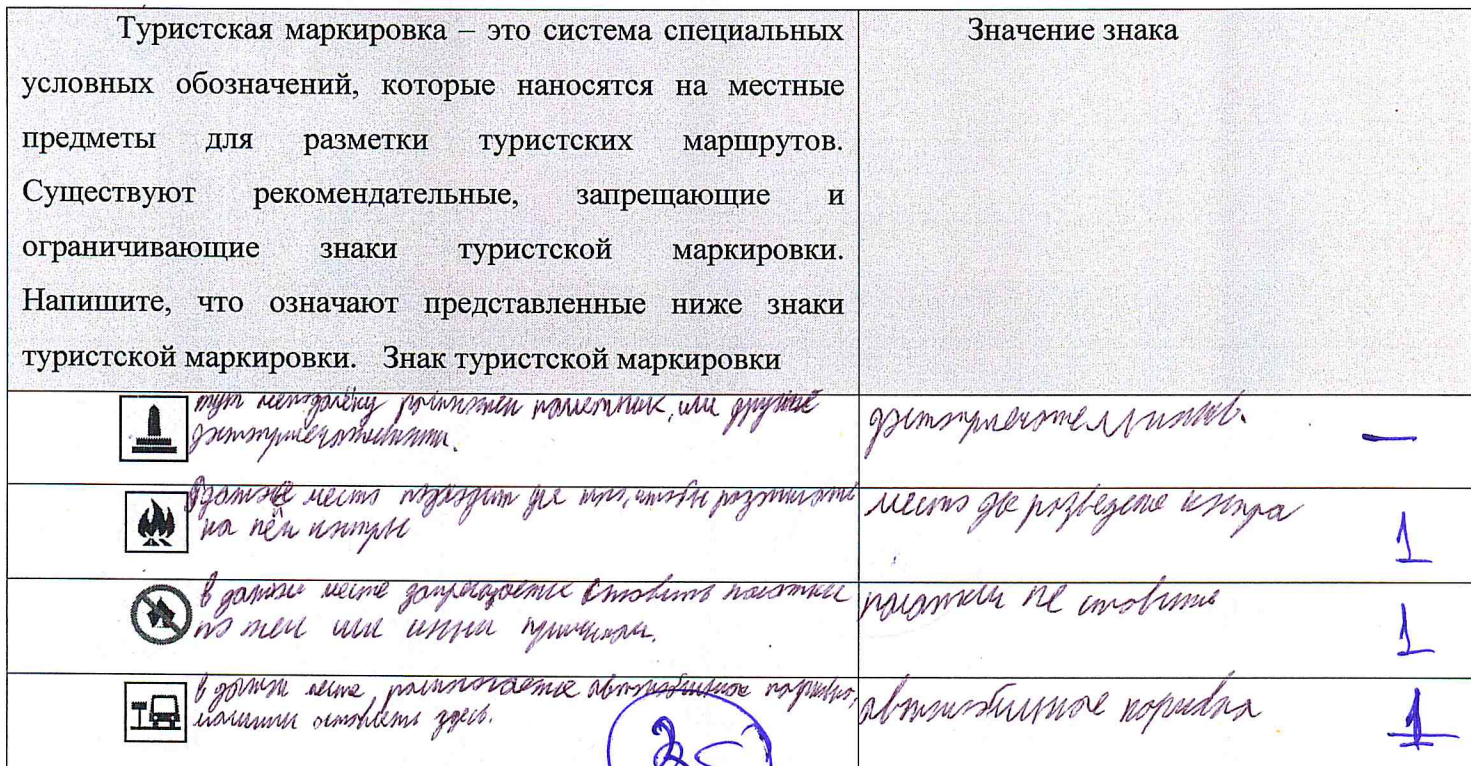 Туристская маркировка – это система специальных
условных обозначений, которые наносятся на местные
предметы для разметки туристских маршрутов.
Существуют рекомендательные, запрещающие и
ограничивающие знаки туристской маркировки.
Напишите, что означают представленные ниже знаки
туристской маркировки. Знак туристской маркировки
Значение знака
тут неподалёку расположен памятник, или другие
достопримечательности.
достопримечательность. —
место подходит для того, чтобы разжигать
на нём костры
место для разведения костра 1
в данном месте запрещается ставить палатки
по тем или иным причинам.
палатки не ставить 1
в данном месте располагается автомобильная парковка,
машины оставлять здесь.
автомобильная парковка 1